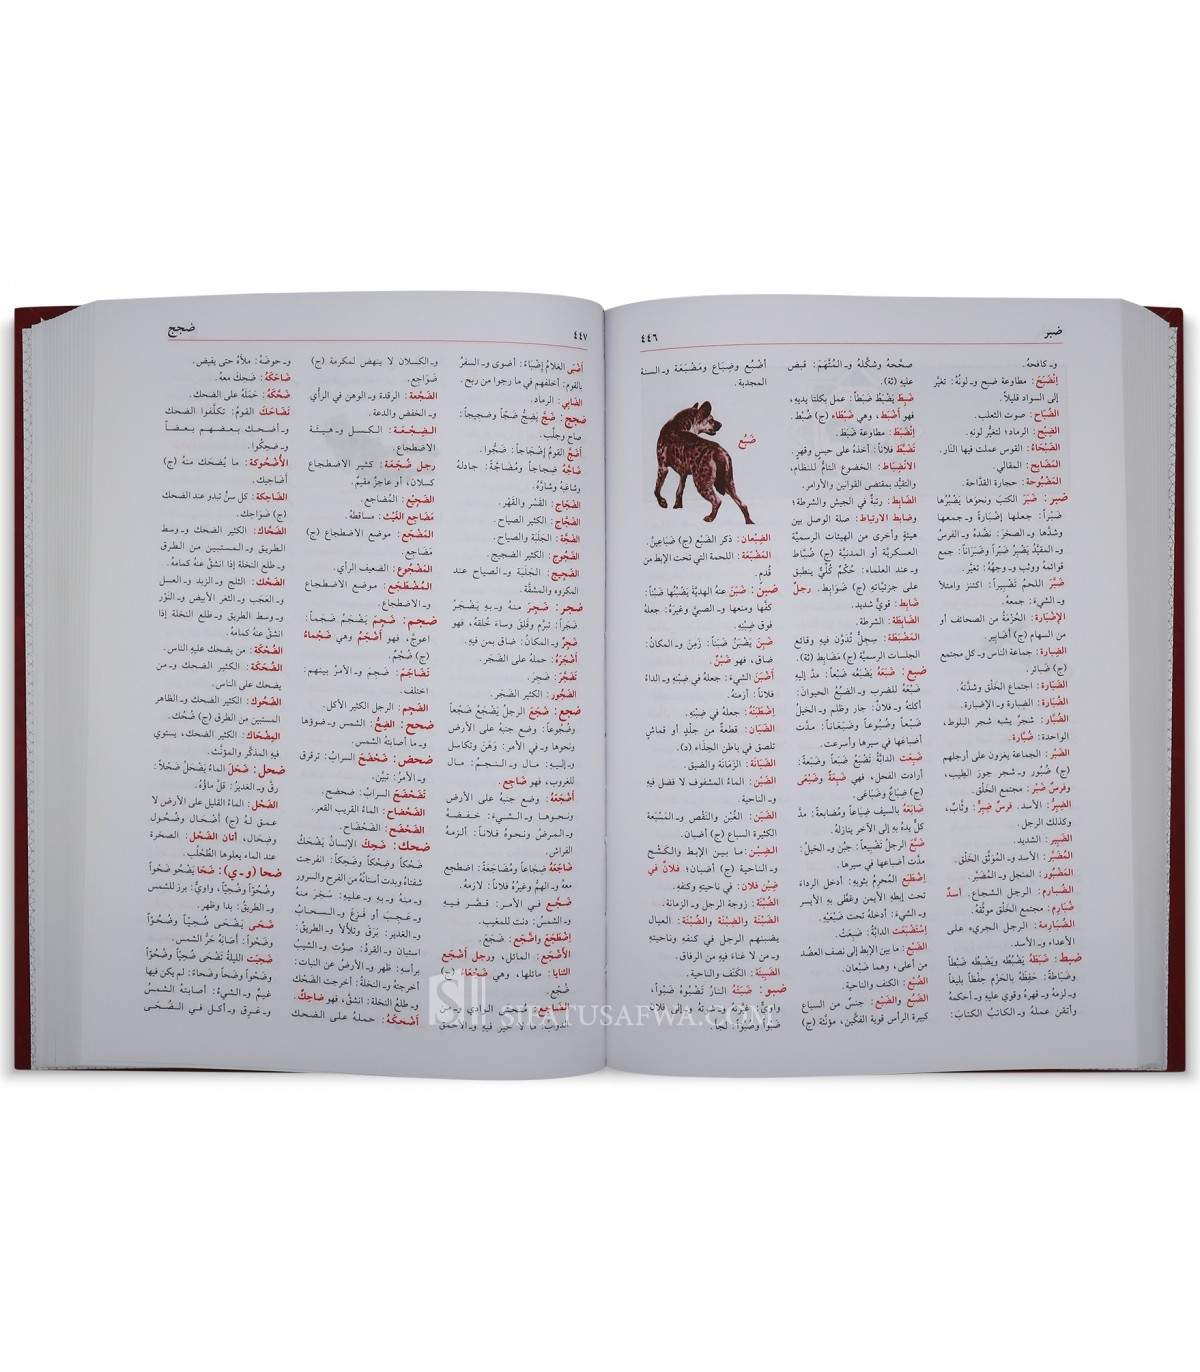 ضبر
٤٤٦
وـ كافحهُ.
إنْضَبَحَ: مطاوعة ضبح وـ لونُهُ: تغيَّر
إلى السواد قليلاً.
الضُّبَاح: صوت الثعلب.
الضِّبْح: الرماد؛ لتغيُّر لونِهِ.
الضَّبْحَاءُ: القوس عملت فيها النَّار.
المَضَابِح: المقالي.
المَضْبُوحة: حجارة القدَّاحة.
ضبر: ضَبَرَ الكتبَ ونحوَها يَضْبُرُها
ضَبْراً: جعلها إضْبَارةً وـ جمعها
وشدَّها وـ الصخرَ: نضَّدهُ وـ الفرسُ
وـ المقيَّدُ يَضْبُرُ ضَبْراً وضَبَرَاناً: جمع
قوائمهُ ووثب وـ وجهُهُ: تغيَّر.
ضَبَّرَ اللحمُ تَضْبِيراً: اكتنز وامتلأ
وـ الشيءَ: جمعهُ.
الإضْبَارة: الحُزْمَةُ من الصحائف أو
من السهام (ج) أضَابِير.
الضِّبارة: جماعة الناس وـ كل مجتمع
(ج) ضَبائر.
الضَّبَارة: اجتماع الخَلْق وشدَّتُهُ.
الضُّبَارة: الضِبارة وـ الإضبارة.
الضُّبَّار: شجرٌ يشبه شجر البلوط،
الواحدة: ضُبَّارة.
الضَّبْر: الجماعة يغزون على أرجلهم
(ج) ضُبُور وـ شجر جوز الطيب،
وفرسٌ ضَبْر: مجتمع الخَلْق.
الضِبِرُّ: الأسد. فرسٌ ضِبِرٌّ: وثَّابٌ،
وكذلك الرجل.
الضَّبِير: الشديد.
المُضَبَّر: الأسد وـ المُوَثَّق الخَلْق.
المَضْبُور: المنجل وـ المُضَبَّر.
الضُّبارِم: الرجل الشجاع. أسدٌ
ضُبَارِم: مجتمع الخَلْق موثَّقُهُ.
الضُّبَارِمة: الرجل الجريء على
الأعداء وـ الأسد.
ضبط: ضَبَطَهُ يَضْبُطُه ويَضْبِطُه ضَبْطاً
وضَبَاطةً: حفِظَهُ بالحَزْمِ حِفْظاً بليغاً
وـ لزمهُ وـ قهرهُ وقوِي عليه وـ أحكمهُ
وأتقن عملهُ وـ الكاتبُ الكتابَ:
صحَّحهُ وشكَّلهُ وـ المُتَّهَمَ: قبض
عليه (ثة).
ضَبِطَ يَضْبَطُ ضَبَطاً: عمل بكلتا يديهِ،
فهو أَضْبَط، وهي ضَبْطَاء (ج) ضُبْط.
إنْضَبَطَ: مطاوعة ضَبَطَ.
تَضَبَّطَ فلاناً: أخذهُ على حبسٍ وقهرٍ.
الانْضِباط: الخضوع التامُّ للنظام،
والتقيُّد بمقتضى القوانين والأوامر.
الضَّابِط: رتبةٌ في الجيش والشرطة؛
وضابط الارتباط: صلة الوصل بين
هيئةٍ وأخرى من الهيئات الرسميَّة
العسكريَّة أو المدنيَّة (ج) ضُبَّاط
وـ عند العلماء: حُكْمٌ كُلِّيٌّ ينطبق
على جزئيَّاتِهِ (ج) ضَوَابِط. رجلٌ
ضَابِط: قويٌّ شديد.
الضَّابِطَة: الشرطة.
المَضْبَطَة: سِجلٌّ تُدَوَّن فيه وقائع
الجلسات الرسميَّة (ج) مَضَابِط (ثة).
ضبع: ضَبَعَهُ يَضْبَعُهُ ضَبْعاً: مدَّ إليهِ
ضَبْعَهُ للضرب وـ الضَّبُعُ الحيوانَ:
أكلهُ وـ فلانٌ: جار وظلم وـ الخيلُ
ضَبْعاً وضُبُوعاً وضَبَعَاناً: مدَّت
أضباعَها في سيرها وأسرعت.
ضَبِعَت الدابَّةُ تَضْبَعُ ضَبَعاً وضَبَعةً:
أرادت الفحل، فهي ضَبِعَةٌ وضَبْعَى
(ج) ضِبَاعٌ وضَبَاعَى.
ضَابَعَهُ بالسيف ضِبَاعاً ومُضَابعةً: مدَّ
كلٌّ يدهُ به إلى الآخر ينازلهُ.
ضَبَّعَ الرجلُ تَضْبِيعاً: جبُن وـ الخيلُ:
مدَّت أضباعَها في سيرها.
إضْطَبَعَ المُحرِمُ بثوبه: أدخل الرداءَ
تحت إبطِهِ الأيمن وغطَّى به الأيسر
وـ الشيءَ: أدخلهُ تحت ضَبْعَيْهِ.
إسْتَضْبَعَت الدابَّةُ: ضَبِعَتْ.
الضَّبْع: ما بين الإبط إلى نصف العضُد
من أعلى، وهما ضَبْعان.
الضَّبُع: الكتف والناحية.
الضَّبُع والضَّبْع: جنسٌ من السباع
كبيرة الرأس قوية الفكّين، مؤنَّثة (ج)
أضْبُع وضِبَاع ومَضْبَعَة وـ السنة
المجدبة.
ضَبُع
الضِبْعان: ذكر الضَبُع (ج) ضَبَاعِين.
المَضْبَعَة: اللحمة التي تحت الإبط من
قُدم.
ضبن: ضَبَنَ عنهُ الهديَّة يَضْبُنُها ضَبْناً:
كفَّها ومنعها وـ الصبيَّ وغيرَهُ: جعلهُ
فوق ضِبْنِهِ.
ضَبِنَ يَضْبَنُ ضَبَناً: زَمِنَ وـ المكانُ:
ضاق، فهو ضَبْنٌ.
أَضْبَنَ الشيءَ: جعلهُ في ضِبْنِهِ وـ الداءُ
فلاناً: أزمنهُ.
إضْطَبَنَهُ: جعلهُ في ضِبْنِهِ.
الضَّبَان: قطعةٌ من جلدٍ أو قماشٍ
تلصق في باطن الحِذَاء (د).
الضَّبَانَة: الزَمَانَة والضيق.
الضَّبْن: الماءُ المشفوف لا فضل فيهِ
وـ الناحية.
الضَّبَن: الغُبْن والنَّقْص وـ المَسْبَعَة
الكثيرة السباع (ج) أضْبان.
الضِّبْن: ما بين الإبط والكَشْح
وـ الناحية (ج) أضبان؛ فلانٌ في
ضِبْن فلان: في ناحيتِهِ وكنفِهِ.
الضُّبْنَة: زوجة الرجل وـ الزمانة.
الضَّبْنَة والضِبْنَة والضُبْنَة: العيال
يضبنهم الرجل في كنفهِ وناحيتهِ
وـ من لا غناءَ فيهِ من الرفاق.
الضَّبِيْنَة: الكنف والناحية.
ضبو: ضَبَتْهُ النارُ تَضْبُوهُ ضَبْواً،
ضَبْواً وضُبُوّاً: لجأ.
٤٤٧
ضجج
أضْبَى الغلامُ إضْبَاءً: أضوى وـ السفرُ
بالقوم: أخلفهم في ما رجوا من ربح.
الضَّابِي: الرماد.
ضجج: ضَجَّ يَضِجُّ ضَجّاً وضجيجاً:
صاح وجلَّب.
أضَجَّ القومُ إضْجَاجاً: ضَجُّوا.
ضَاجَّهُ ضِجاجاً ومُضَاجَّةً: جادلهُ
وشاغبهُ وشارَّهُ.
الضَّجَاج: القَسْر والقَهْر.
الضَّجَّاج: الكثير الصياح.
الضَّجَّة: الجَلَبَة والصياح.
الضَّجُوج: الكثير الضجيج.
الضَّجِيج: الجَلَبَة وـ الصياح عند
المكروه والمشقَّة.
ضجر: ضَجِرَ منهُ وـ بِهِ يَضْجَرُ
ضَجَراً: تبرَّم وقَلِق وساءَ خُلقهُ، فهو
ضَجِرٌ وـ المكانُ: ضاق بمن فيهِ.
أضْجَرَهُ: حملهُ على الضَجَر.
تَضَجَّرَ: ضَجِرَ.
الضَّجُور: الكثير الضَجَر.
ضجع: ضَجَعَ الرجلُ يَضْجَعُ ضَجْعاً
وضُجُوعاً: وضع جنبهُ على الأرض
ونحوها وـ في الأمر: وَهَنَ وتكاسل
وـ إليه: مال وـ النجمُ: مال
للغروب، فهو ضَاجِع.
أضْجَعَهُ: وضع جنبهُ على الأرض
ونحوها وـ الشيءَ: خفضهُ
وـ المرضُ ونحوهُ فلاناً: ألزمهُ
الفراش.
ضَاجَعَهُ ضِجَاعاً ومُضَاجَعَةً: اضطجع
معهُ وـ الهمُّ وغيرُهُ فلاناً: لازمهُ.
ضَجَّعَ في الأمر: قصَّر فيهِ
وـ الشمسُ: دنت للمغيب.
إضْطَجَعَ واضَّجَعَ: ضَجَعَ.
الأضْجَع: المائل، ورجل أضْجَع
الثنايا: مائلها، وهي ضَجْعَاءُ (ج)
ضُجْع.
وـ الكسلان لا ينهض لمكرمة (ج)
ضَوَاجِع.
الضَّجْعة: الرقدة وـ الوهن في الرأي
وـ الخفض والدعة.
الضِجْعَة: الكسل وـ هيئة
الاضطجاع.
رجل ضُجَعَة: كثير الاضطجاع
كسلان، أو عاجزٌ مقيمٌ.
الضَّجِيْع: المُضاجع.
مَضَاجِع الغَيْث: مساقطهُ.
المَضْجَع: موضع الاضطجاع (ج)
مَضَاجِع.
المَضْجُوع: الضعيف الرأي.
المُضْطَجَع: موضع الاضطجاع
وـ الاضطجاع.
ضجم: ضَجِمَ يَضْجَمُ ضَجَماً:
اعوجَّ، فهو أضْجَمُ وهي ضَجْمَاءُ
(ج) ضُجْمٌ.
تَضَاجَمَ: ضَجِمَ وـ الأمرُ بينهم:
اختلف.
الضَّجِم: الرجل الكثير الأكل.
ضحح: الضِحُّ: الشمس وـ ضوؤها
وـ ما أصابتهُ الشمس.
ضحض: ضَحْضَحَ السرابُ: ترقرق
وـ الأمرُ: تبيَّن.
تَضَحْضَحَ السرابُ: ضحضح.
الضَّحْضَاح: الماء القريب القعر.
الضَّحْضَح: الضَحْضَاح.
ضحك: ضَحِكَ الإنسانُ يَضْحَكُ
ضَحْكاً وضِحْكاً وضَحِكاً: انفرجت
شفتاهُ وبدت أسنانُهُ من الفرح والسرور
وـ منهُ وـ بِهِ وـ عليهِ: سَخِرَ منهُ
وـ عَجِبَ أو فَزِعَ وـ السحابُ
وـ الغدير: بَرَق وتلألأ وـ الطريقُ:
استبان وـ القردُ: صوَّت وـ الشيبُ
برأسهِ: ظهر وـ الأرضُ عن النبات:
أخرجتهُ وـ النخلةُ: أخرجت الضَحْك
وـ طَلْعُ النخلة: انشقَّ، فهو ضاحِكٌ.
أضْحَكَهُ: حملهُ على الضحك
وـ حوضَهُ: ملأهُ حتى يفيض.
ضَاحَكَهُ: ضَحِكَ معهُ.
ضَحَّكَهُ: حَمَلَهُ على الضحك.
تَضَاحَكَ القومُ: تكلَّفوا الضحك
وـ أضحك بعضهم بعضاً
وـ ضحِكوا.
الأُضْحُوكة: ما يُضحَك منهُ (ج)
أضَاحِيك.
الضَاحِكَة: كل سنٍّ تبدو عند الضحك
(ج) ضَوَاحِك.
الضَّحَّاك: الكثير الضحك وـ وسط
الطريق وـ المستبين من الطرق
وـ طلع النخلة إذا انشقَّ عنهُ كمامهُ.
الضَّحْك: الثلج وـ الزبد وـ العسل
وـ العَجَب وـ الثغر الأبيض وـ النَّوْر
وـ وسط الطريق وـ طلع النخلة إذا
انشقَّ عنهُ كمامهُ.
الضُّحْكَة: من يضحك عليهِ الناس.
الضُّحَكَة: الكثير الضحك وـ من
يضحك على الناس.
الضَّحُوك: الكثير الضحك وـ الظاهر
المستبين من الطرق (ج) ضُحُك.
المِضْحَاك: الكثير الضحك، يستوي
فيهِ المذكَّر والمؤنَّث.
ضحل: ضَحَلَ الماءُ يَضْحَلُ ضَحْلاً:
رقَّ وـ الغديرُ: قلَّ ماؤُهُ.
الضَّحْل: الماءُ القليل على الأرض لا
عمق لهُ (ج) أضْحَال وضُحُول
وضِحَال، أتان الضَّحْل: الصخرة
عند الماء يعلوها الطُّحْلُب.
ضحا (و-ي): ضَحَا يَضْحُو ضَحْواً
وضُحُوّاً وضُحِيّاً، واويٌّ: برز للشمس
وـ الطريقُ: بدا وظهر.
ضَحَى يَضْحَى ضُحِيّاً وضَحْواً
وضُحُوّاً: أصابهُ حَرُّ الشمس.
ضَحِيَت الليلةُ تَضْحَى ضُحِيّاً وضُحُوّاً
وضَحْواً وضَحاً وضَحاءً: لم يكن فيها
غيمٌ وـ الشيءُ: أصابتهُ الشمسُ
وـ عَرِق وـ أكل في الضُحَى
SIFATUSAFWA.COM